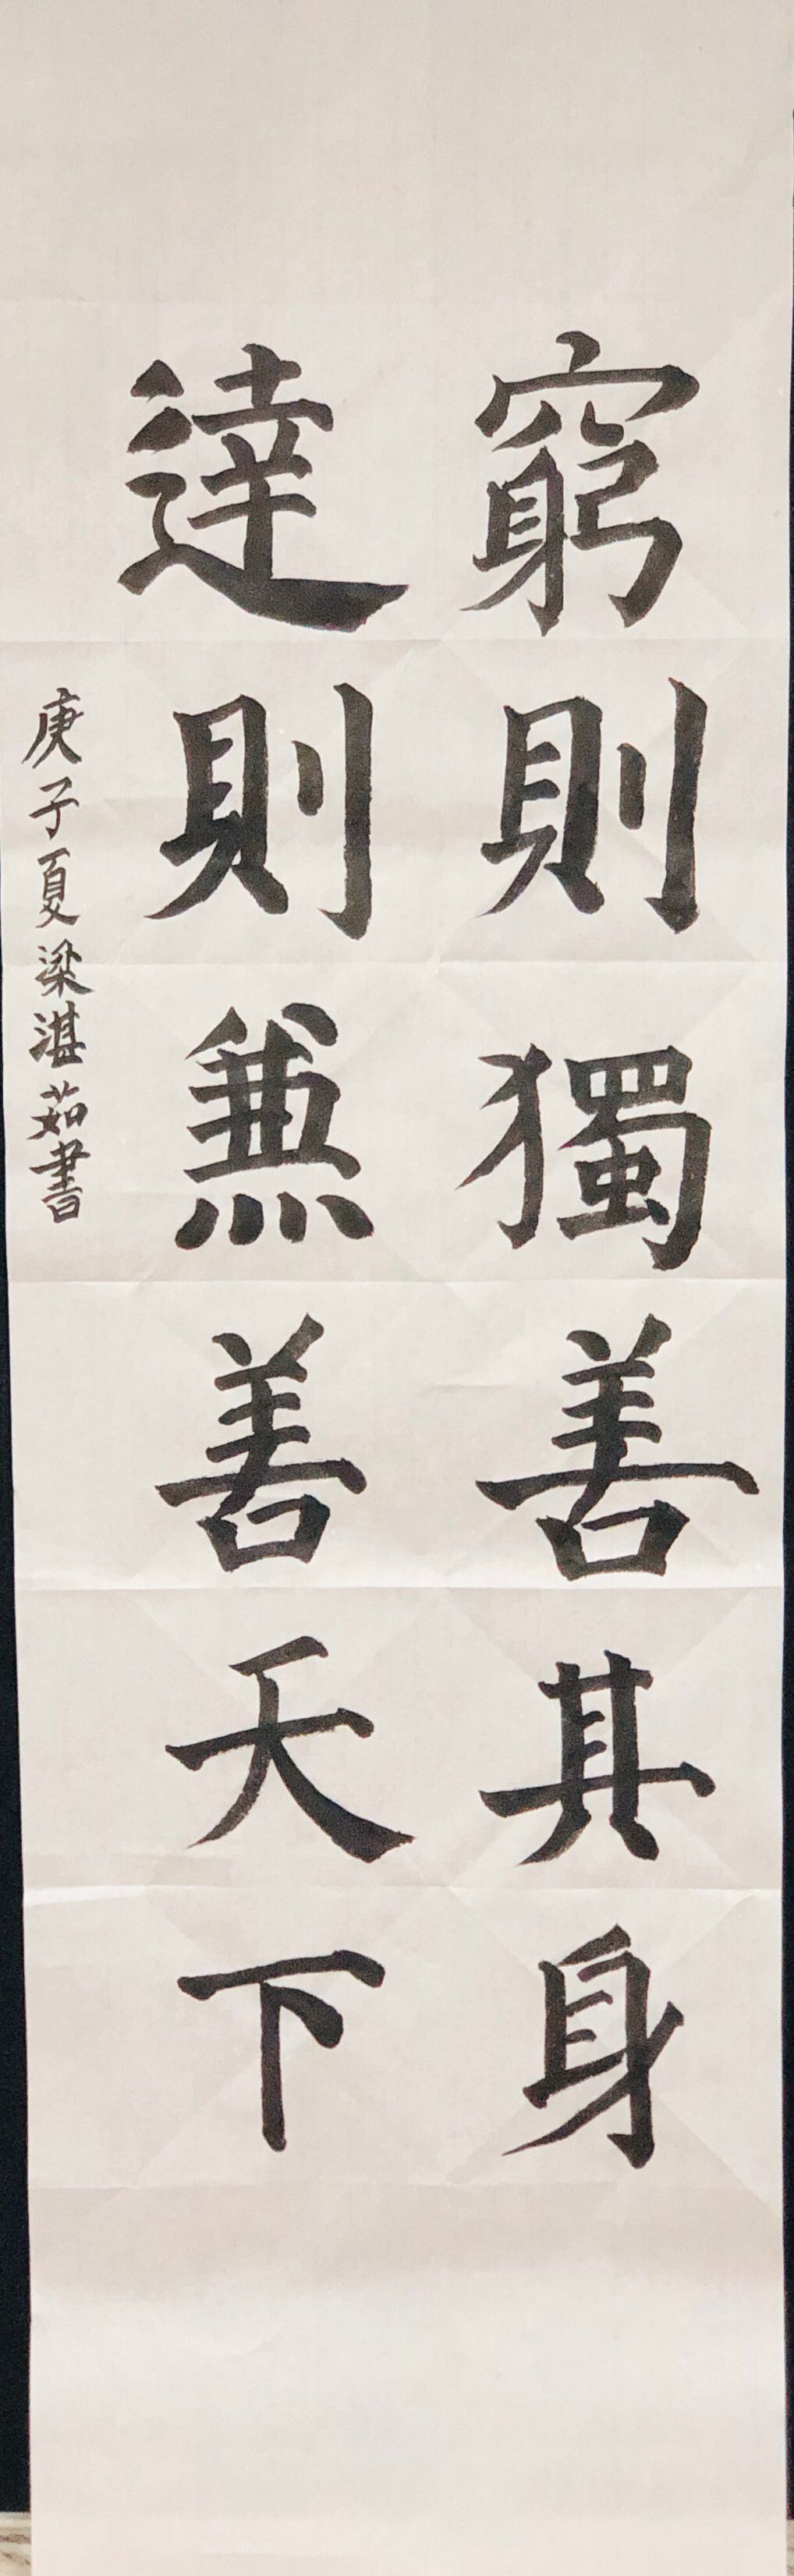 窮則獨善其身
達則兼善天下
庚子夏梁湛茹書